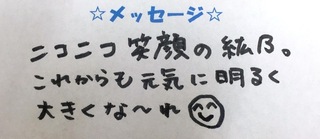 ☆メッセージ☆
ニコニコ笑顔の紘乃。
これからも元気に明るく
大きくな〜れ